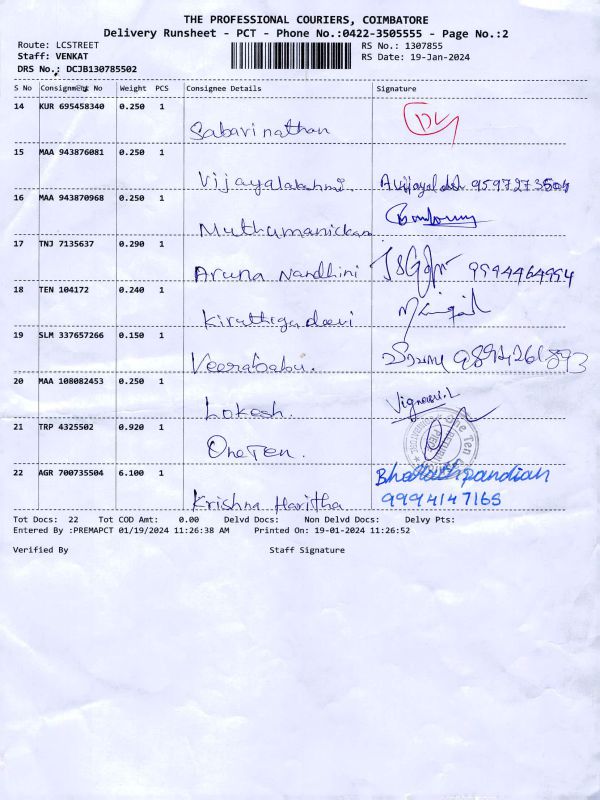 THE PROFESSIONAL COURIERS, COIMBATORE
Delivery Runsheet - PCT - Phone No.:0422-3505555 - Page No.:2
Route: LCSTREET RS No.: 1307855
Staff: VENKAT RS Date: 19-Jan-2024
DRS No.: DCJB130785502
S No Consignment No Weight PCS Consignee Details Signature
14 KUR 695458340 0.250 1
Sabarinathan DL
15 MAA 943876081 0.250 1
Vijayalakshmi. 9597273504
16 MAA 943870968 0.250 1
Muthumanickam
17 TNJ 7135637 0.290 1
Aruna Nandhini 9994464994
18 TEN 104172 0.240 1
Kiruthigadevi
19 SLM 337657266 0.150 1
Veerababu. 9894261893
20 MAA 108082453 0.250 1
Lokesh. Vignesh.L
21 TRP 4325502 0.920 1
One Ten.
22 AGR 700735504 6.100 1 Bharathpandian
Krishna Haritha 9994147165
Tot Docs: 22 Tot COD Amt: 0.00 Delvd Docs: Non Delvd Docs: Delvy Pts:
Entered By :PREMAPCT 01/19/2024 11:26:38 AM Printed On: 19-01-2024 11:26:52
Verified By Staff Signature